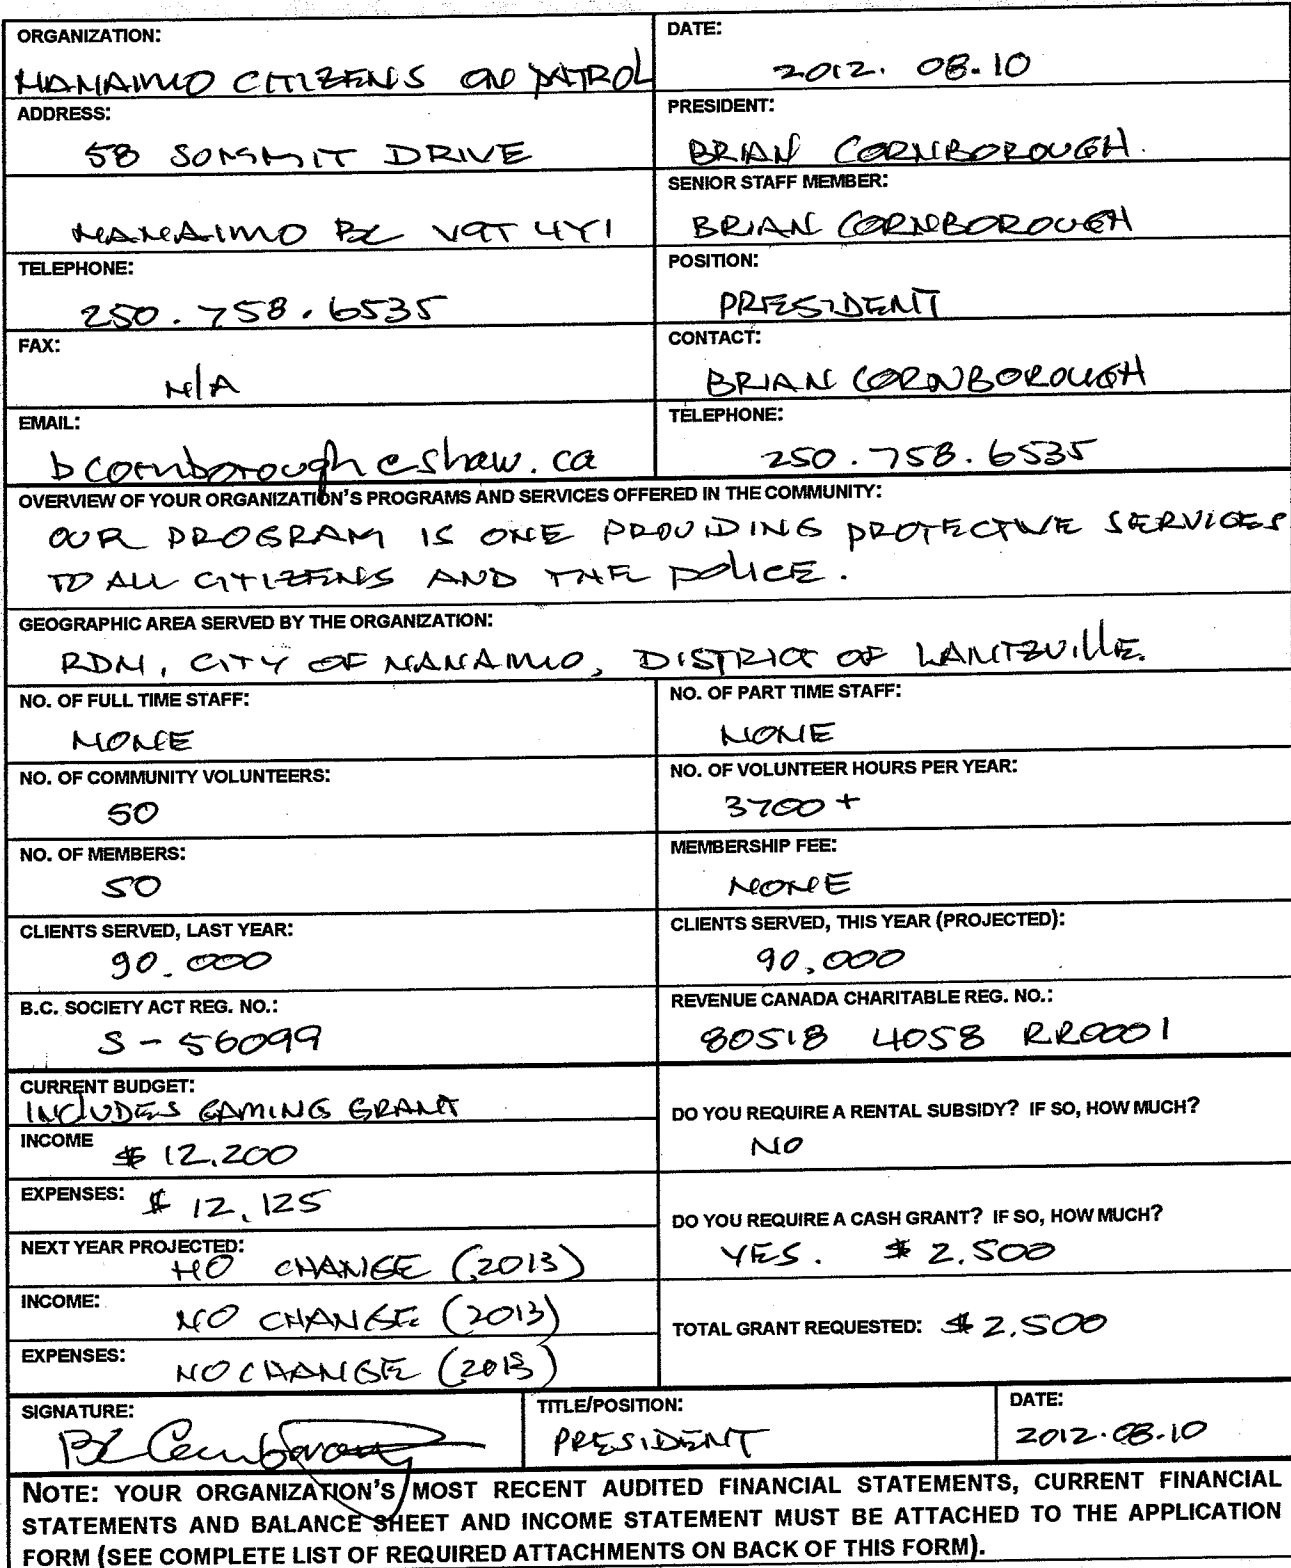 ORGANIZATION:
NANAIMO CITIZENS ON PATROL
DATE:
2012. 08.10
ADDRESS:
58 SOMMIT DRIVE
PRESIDENT:
BRIAN CORNBOROUGH.
NANAIMO BC V9T 4Y1
SENIOR STAFF MEMBER:
BRIAN CORNBOROUGH
TELEPHONE:
250.758.6535
POSITION:
PRESIDENT
FAX:
N/A
CONTACT:
BRIAN CORNBOROUGH
EMAIL:
bcornborough@shaw.ca
TELEPHONE:
250.758.6535
OVERVIEW OF YOUR ORGANIZATION'S PROGRAMS AND SERVICES OFFERED IN THE COMMUNITY:
OUR PROGRAM IS ONE PROVIDING PROTECTIVE SERVICES
TO ALL CITIZENS AND THE POLICE.
GEOGRAPHIC AREA SERVED BY THE ORGANIZATION:
RDN, CITY OF NANAIMO, DISTRICT OF LANTZVILLE.
NO. OF FULL TIME STAFF:
NONE
NO. OF PART TIME STAFF:
NONE
NO. OF COMMUNITY VOLUNTEERS:
50
NO. OF VOLUNTEER HOURS PER YEAR:
3700+
NO. OF MEMBERS:
50
MEMBERSHIP FEE:
NONE
CLIENTS SERVED, LAST YEAR:
90.000
CLIENTS SERVED, THIS YEAR (PROJECTED):
90,000
B.C. SOCIETY ACT REG. NO.:
S-56099
REVENUE CANADA CHARITABLE REG. NO.:
80518 4058 RR0001
CURRENT BUDGET:
INCLUDES GAMING GRANT
INCOME
$12.200
DO YOU REQUIRE A RENTAL SUBSIDY? IF SO, HOW MUCH?
NO
EXPENSES: $12,125
NEXT YEAR PROJECTED:
NO CHANGE (2013)
DO YOU REQUIRE A CASH GRANT? IF SO, HOW MUCH?
YES. $2.500
INCOME:
NO CHANGE (2013)
EXPENSES:
NO CHANGE (2013)
TOTAL GRANT REQUESTED: $2,500
SIGNATURE:
TITLE/POSITION:
PRESIDENT
DATE:
2012.08.10
NOTE: YOUR ORGANIZATION'S MOST RECENT AUDITED FINANCIAL STATEMENTS, CURRENT FINANCIAL
STATEMENTS AND BALANCE SHEET AND INCOME STATEMENT MUST BE ATTACHED TO THE APPLICATION
FORM (SEE COMPLETE LIST OF REQUIRED ATTACHMENTS ON BACK OF THIS FORM).